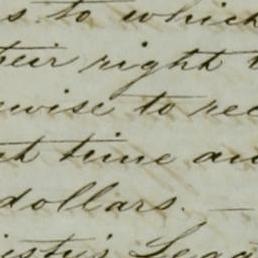 s to which
eir right t
wise to rec
at time an
dollars. —